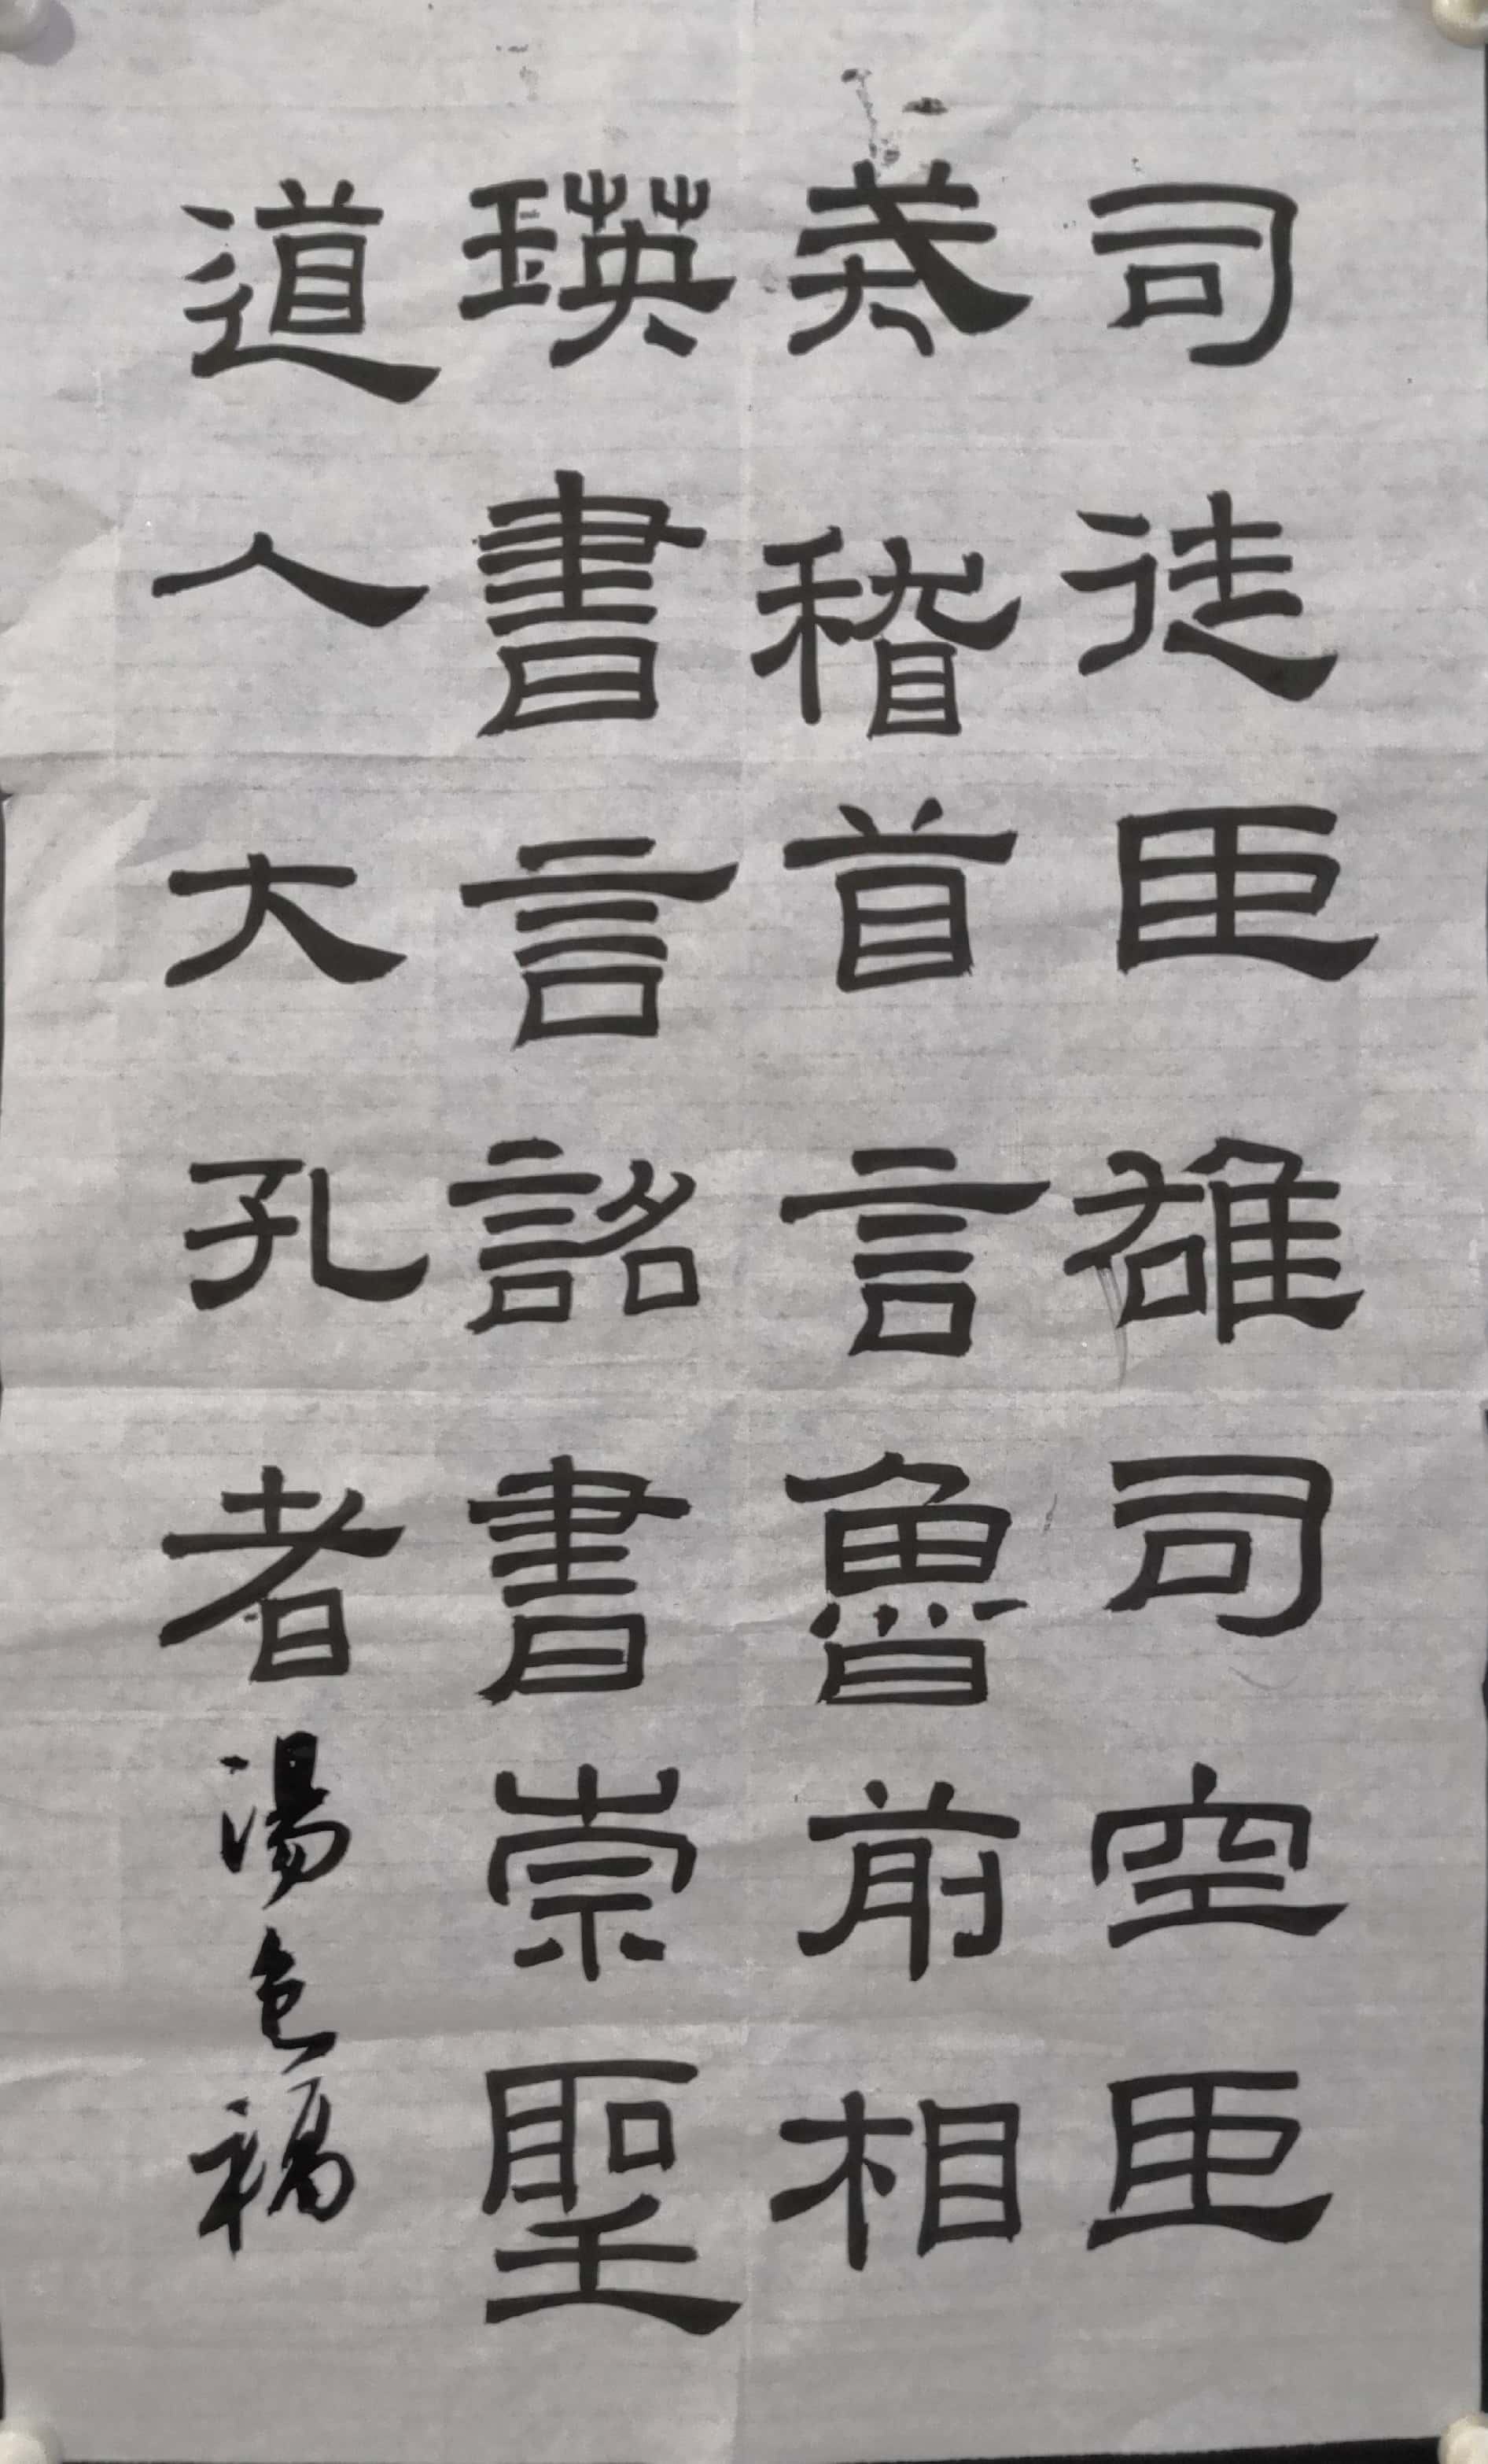 司徒臣雄司空臣
戒稽首言魯前相
瑛書言詔書崇聖
道人大孔者湯